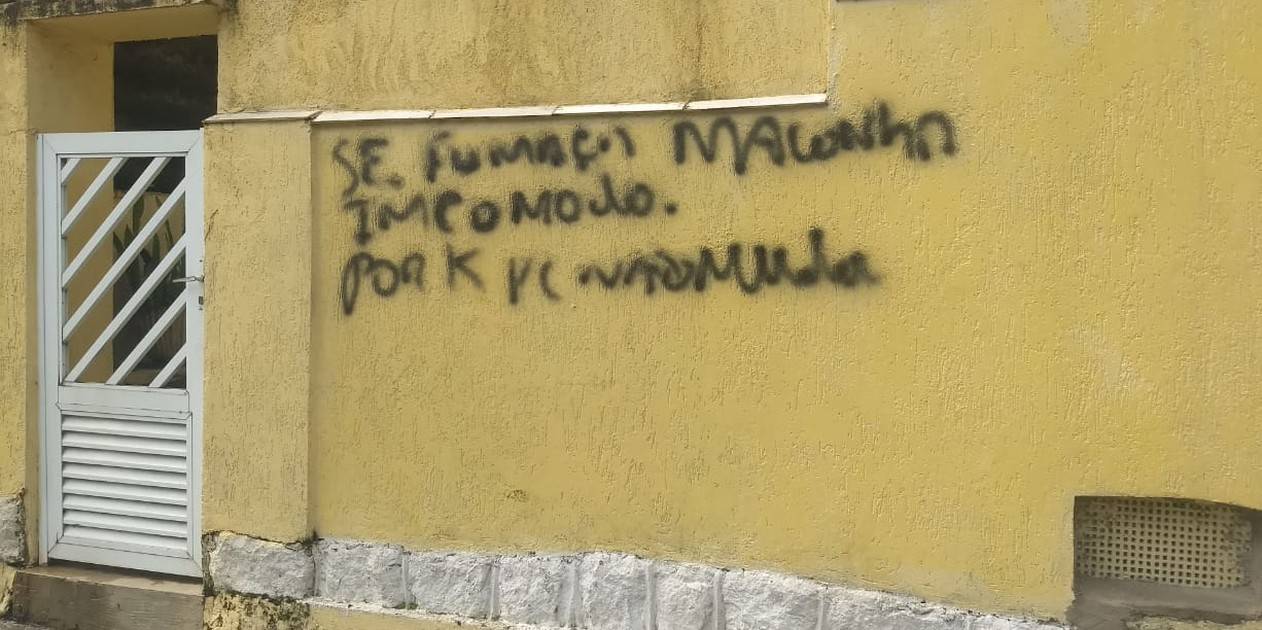 SE FUMAÇA MACONHA
IMCOMODO.
POR K VC NAOMUda